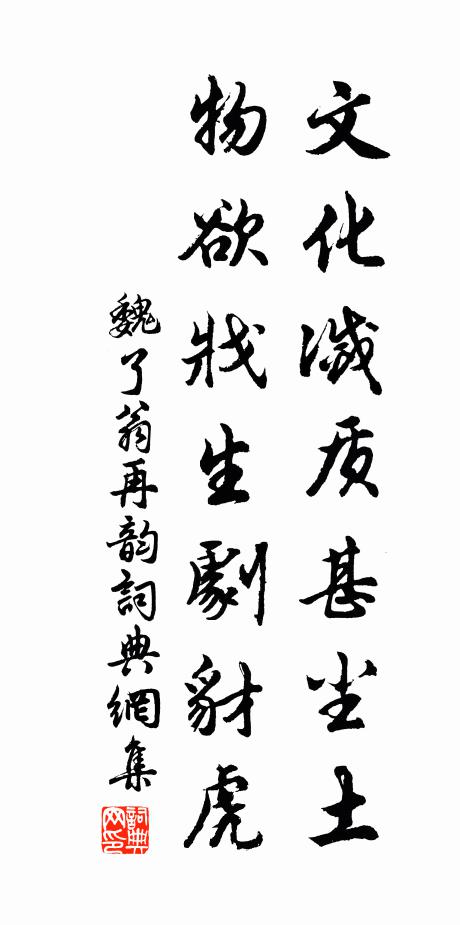 文化濈质甚尘土
物欲戕生劇豺虎
魏了翁再韵詞典網集
詞典网印